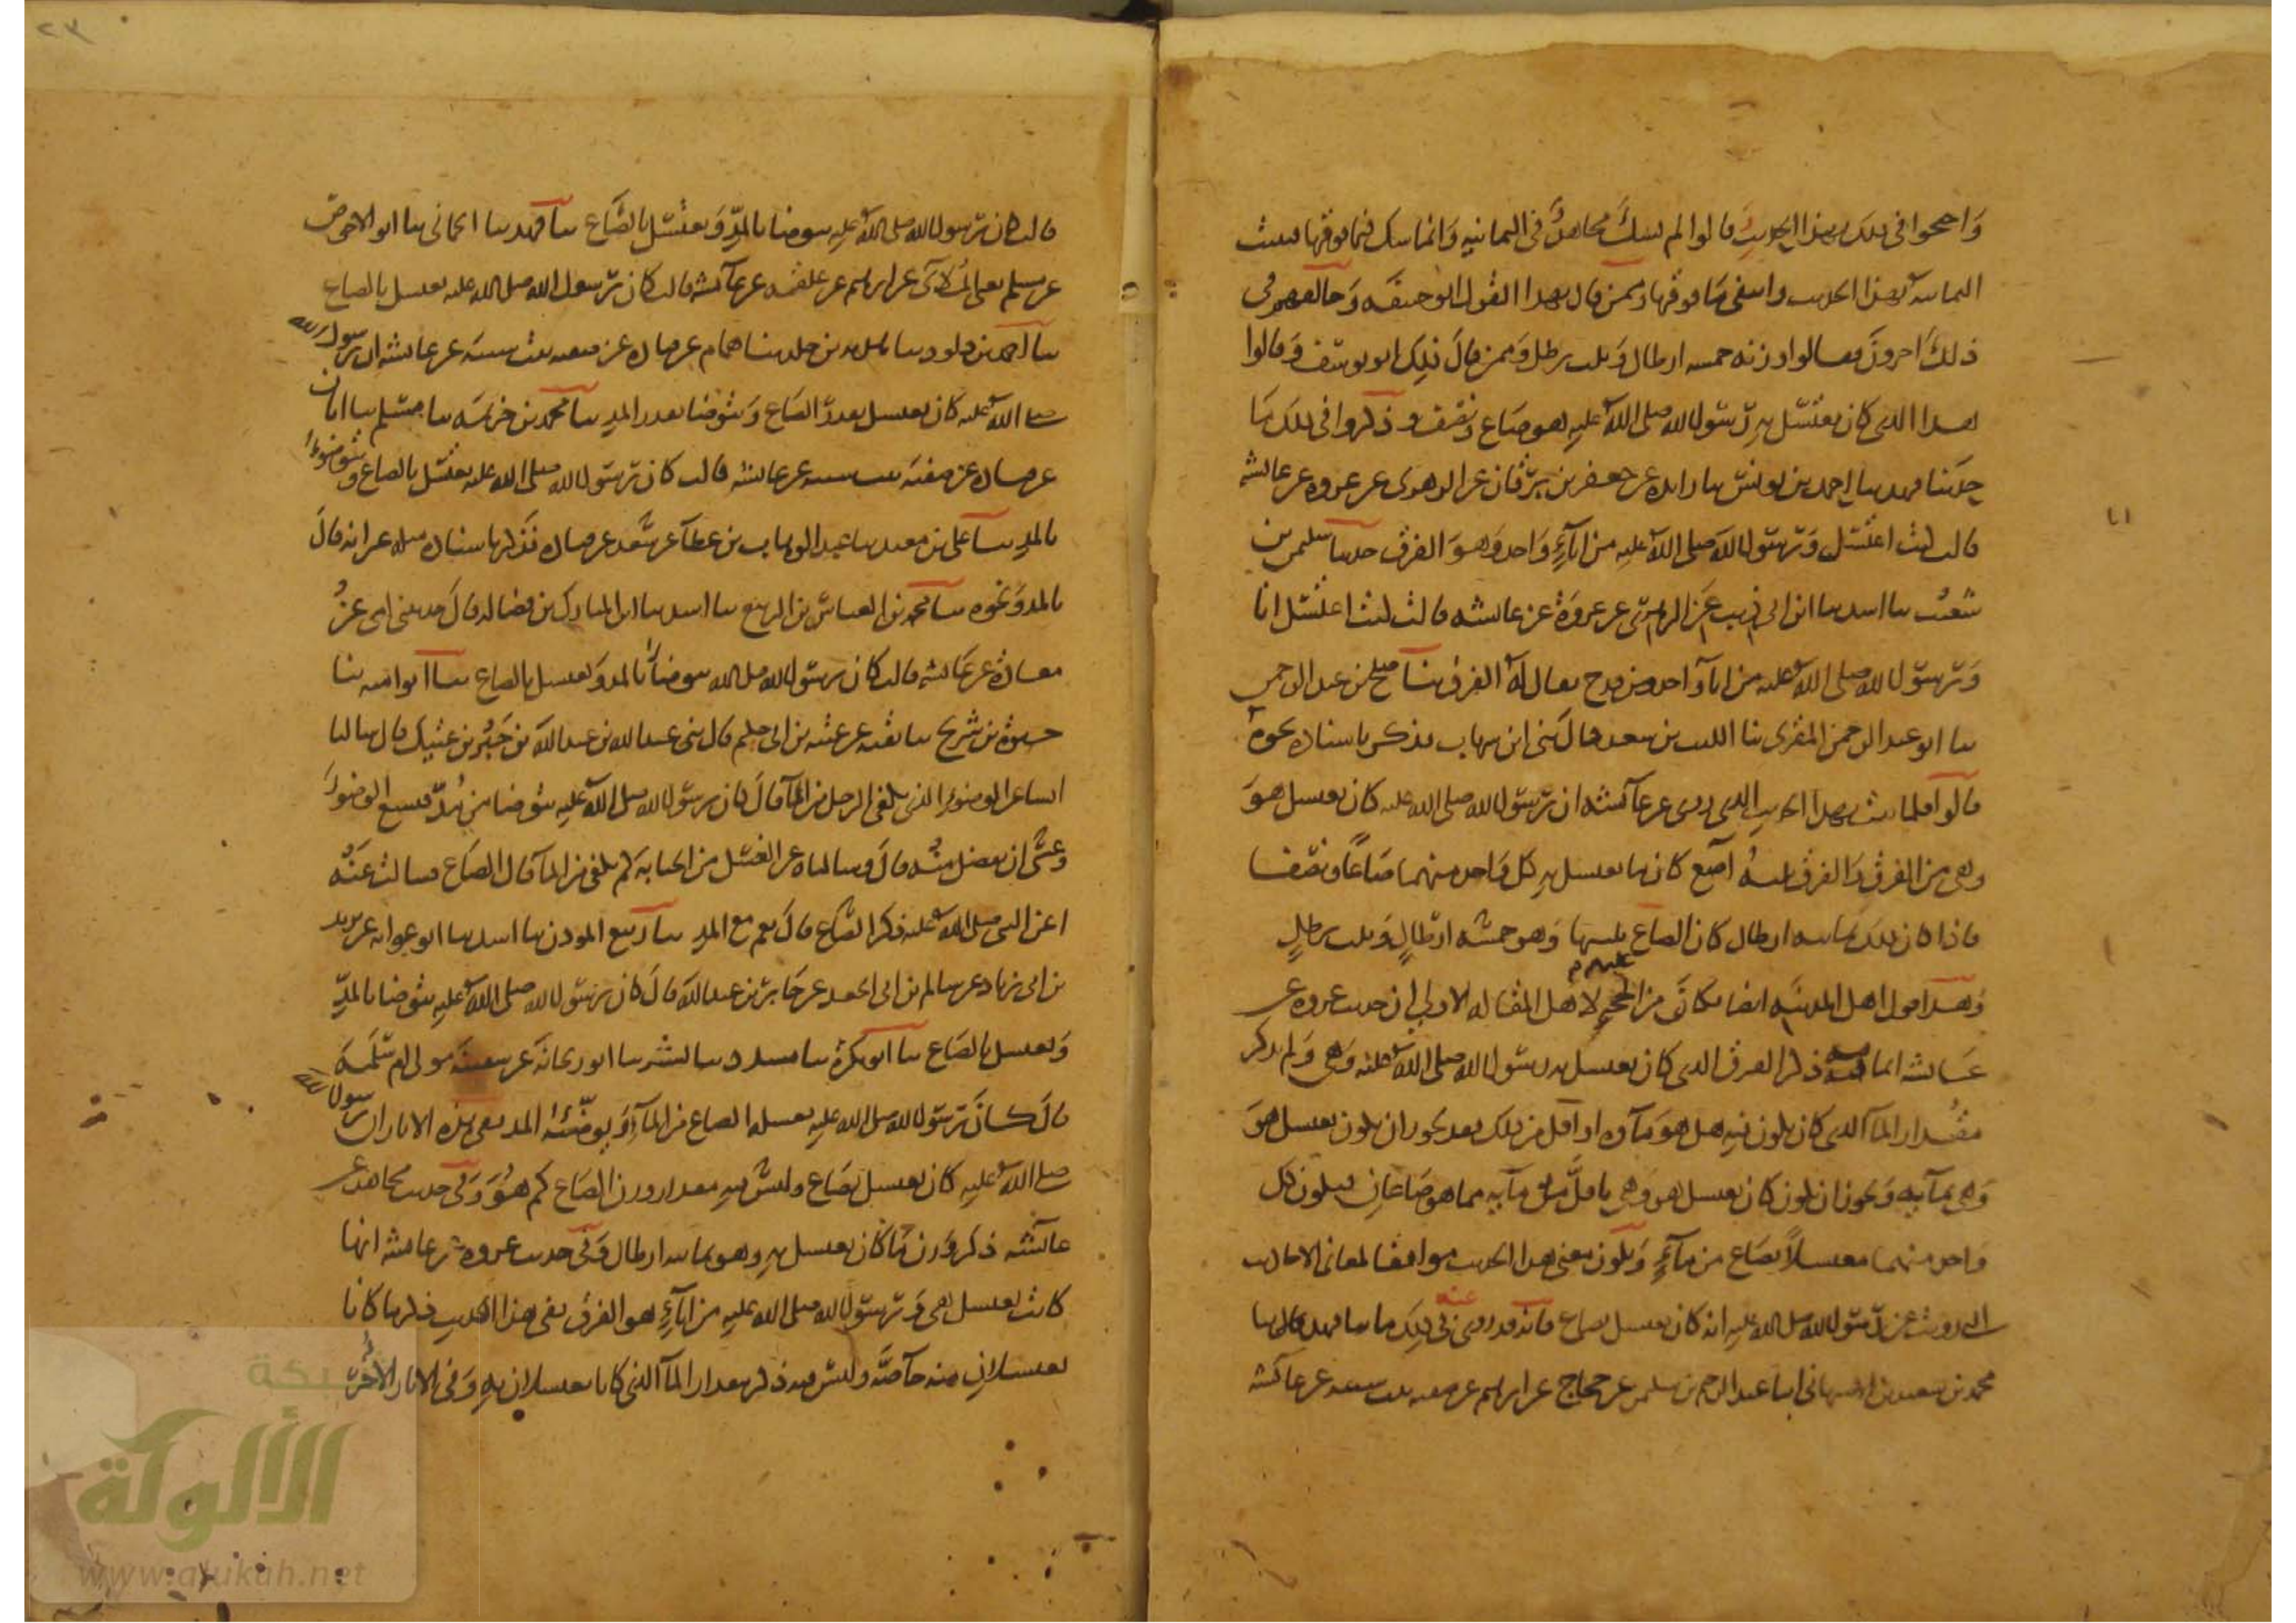 واحتجوا في ذلك بهذا الحديث قالوا لم يشك مجاهد في الثمانية وانما شك فيما فوقها فثبتت
الثمانية بهذا الحديث وانتفى ما فوقها وممن قال بهذا القول ابو حنيفة وخالفهم في
ذلك اخرون فقالوا وزنه خمسة ارطال وثلث رطل وممن قال ذلك ابو يوسف وقالوا
هذا الذي كان يغتسل به رسول الله صلى الله عليه هو صاع ونصف وذكروا في ذلك ما
حدثنا فهد نا احمد بن يونس نا زايدة عن جعفر بن برقان عن الزهري عن عروة عن عائشة
قالت كنت اغتسل ورسول الله صلى الله عليه من اناء واحد وهو الفرق حدثنا سليمن بن
شعيب نا اسد نا ابن ابي ذيب عن الزهري عن عروة عن عائشة قالت كنت اغتسل انا
ورسول الله صلى الله عليه من اناء واحد من قدح يقال له الفرق نا صلح بن عبد الرحمن
نا ابو عبد الرحمن المقري نا الليث بن سعد قال ني ابن شهاب فذكر باسناده نحوه
قالوا فلما ثبت بهذا الحديث الذي روي عن عائشة ان رسول الله صلى الله عليه كان يغتسل هو
وهي من الفرق والفرق ثلثة آصع كان ما يغتسل به كل واحد منهما صاعا ونصفا
فاذا كان ذلك ثمانية ارطال كان الصاع ثلثيها وهو خمسة ارطال وثلث رطل
وهذا قول اهل المدينة ايضا فكان من الحجة عليهم لاهل المقالة الاولى ان حديث عروة عن
عائشة انما فيه ذكر الفرق الذي كان يغتسل به رسول الله صلى الله عليه وهي ولم يذكر
مقدار الماء الذي كان يكون فيه هل هو ملؤه او اقل من ذلك فقد يجوز ان يكون يغتسل هو
وهي بملئه ويجوز ان يكون كان يغتسل هو وهي باقل من ملئه مما هو صاعان فيكون كل
واحد منهما مغتسلا بصاع من ماء ويكون معنى هذا الحديث موافقا لمعاني الاحاديث
التي رويت عن رسول الله صلى الله عليه انه كان يغتسل بصاع فانه قد روي عنه في ذلك ما نا فهد قال نا
محمد بن سعيد بن الاصبهاني انبا عبد الرحيم بن سليمن عن حجاج عن ابرهيم عن صفية بنت شيبة عن عائشة
٢٣
قالت كان رسول الله صلى الله عليه يتوضا بالمد ويغتسل بالصاع نا فهد نا الحماني نا ابو الاحوص
عن مسلم يعني الملائي عن ابرهيم عن علقمة عن عائشة قالت كان رسول الله صلى الله عليه يغتسل بالصاع
نا احمد بن داود نا هدبة بن خلد نا همام عن قتادة عن صفية بنت شيبة عن عائشة ان رسول الله
صلى الله عليه كان يغتسل بقدر الصاع ويتوضا بقدر المد نا محمد بن خزيمة نا مسلم نا ابان
عن قتادة عن صفية بنت شيبة عن عائشة قالت كان رسول الله صلى الله عليه يغتسل بالصاع ويتوضا
بالمد نا علي بن معبد نا عبد الوهاب بن عطاء عن سعد عن قتادة فذكر باسناده مثله غير انه قال
بالمد ونحوه نا محمد بن العباس بن الربيع نا اسد نا المبارك بن فضالة قال حدثتني امي عن
معاذة عن عائشة قالت كان رسول الله صلى الله يتوضا بالمد ويغتسل بالصاع نا ابو امية نا
حيوة بن شريح نا بقية عن عتبة بن ابي حكيم قال ني عبد الله بن عبد الله بن جبر بن عتيك قال سالنا
انسا عن الوضوء الذي يكفي الرجل من الماء قال كان رسول الله صلى الله عليه يتوضا من مد فيسبغ الوضوء
وعسى ان يفضل منه قال وسالناه عن الغسل من الجنابة كم يكفي من الماء قال الصاع فسالت عنه
اعن النبي صلى الله عليه ذكر الصاع قال نعم مع المد نا ربيع المؤذن نا اسد نا ابو عوانة عن يزيد
بن ابي زياد عن سالم بن ابي الجعد عن جابر بن عبد الله قال كان رسول الله صلى الله عليه يتوضا بالمد
ويغتسل بالصاع نا ابو بكرة نا مسدد نا بشر نا ابو ريحانة عن سفينة مولى ام سلمة
قال كان رسول الله صلى الله عليه يغسله الصاع من الماء ويوضئه المد ففي هذه الاثار ان رسول الله
صلى الله عليه كان يغتسل بصاع وليس فيه مقدار وزن الصاع كم هو وفي حديث مجاهد عن
عائشة ذكر وزن ما كان يغتسل به وهو ثمانية ارطال وفي حديث عروة عن عائشة انها
كانت تغتسل هي ورسول الله صلى الله عليه من اناء هو الفرق ففي هذا الحديث ذكر ما كانا
يغتسلان منه خاصة وليس فيه ذكر مقدار الماء الذي كانا يغتسلان به وفي الاثار الاخر
شبكة
الألوكة
www.alukah.net